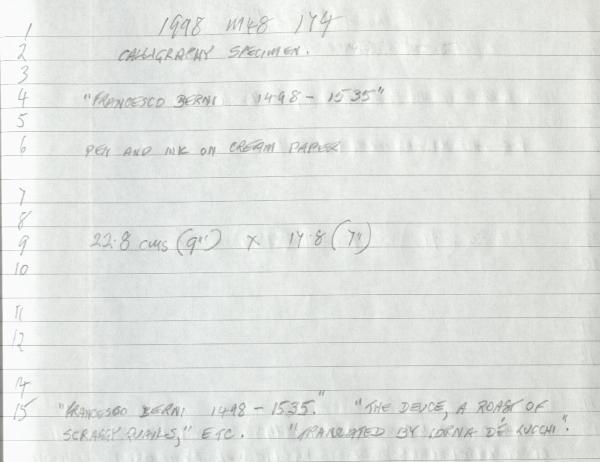 1 1998 M48 174
2 CALLIGRAPHY SPECIMEN.
3
4 "FRANCESCO BERNI 1498 - 1535"
5
6 PEN AND INK ON CREAM PAPER
7
8
9 22.8 cms (9") x 17.8 (7")
10
11
12
14
15 "FRANCESCO BERNI 1498 - 1535." "THE DEUCE, A ROAST OF
SCRAGGY QUAILS," ETC. "TRANSLATED BY LORNA DE' LUCCHI".